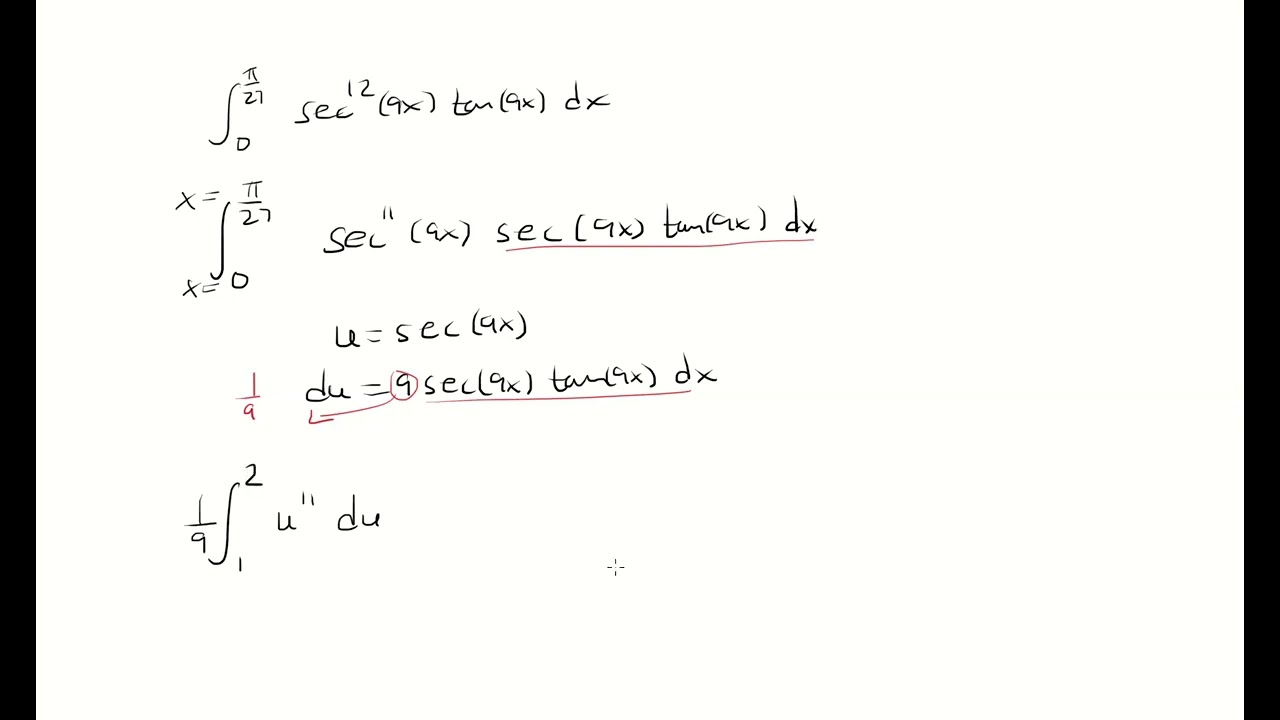 ∫_0^{π/27} sec^{12}(9x) tan(9x) dx
∫_{x=0}^{x=π/27} sec^{11}(9x) sec(9x) tan(9x) dx
u = sec(9x)
1/9 du = 9 sec(9x) tan(9x) dx
1/9 ∫_1^2 u^{11} du